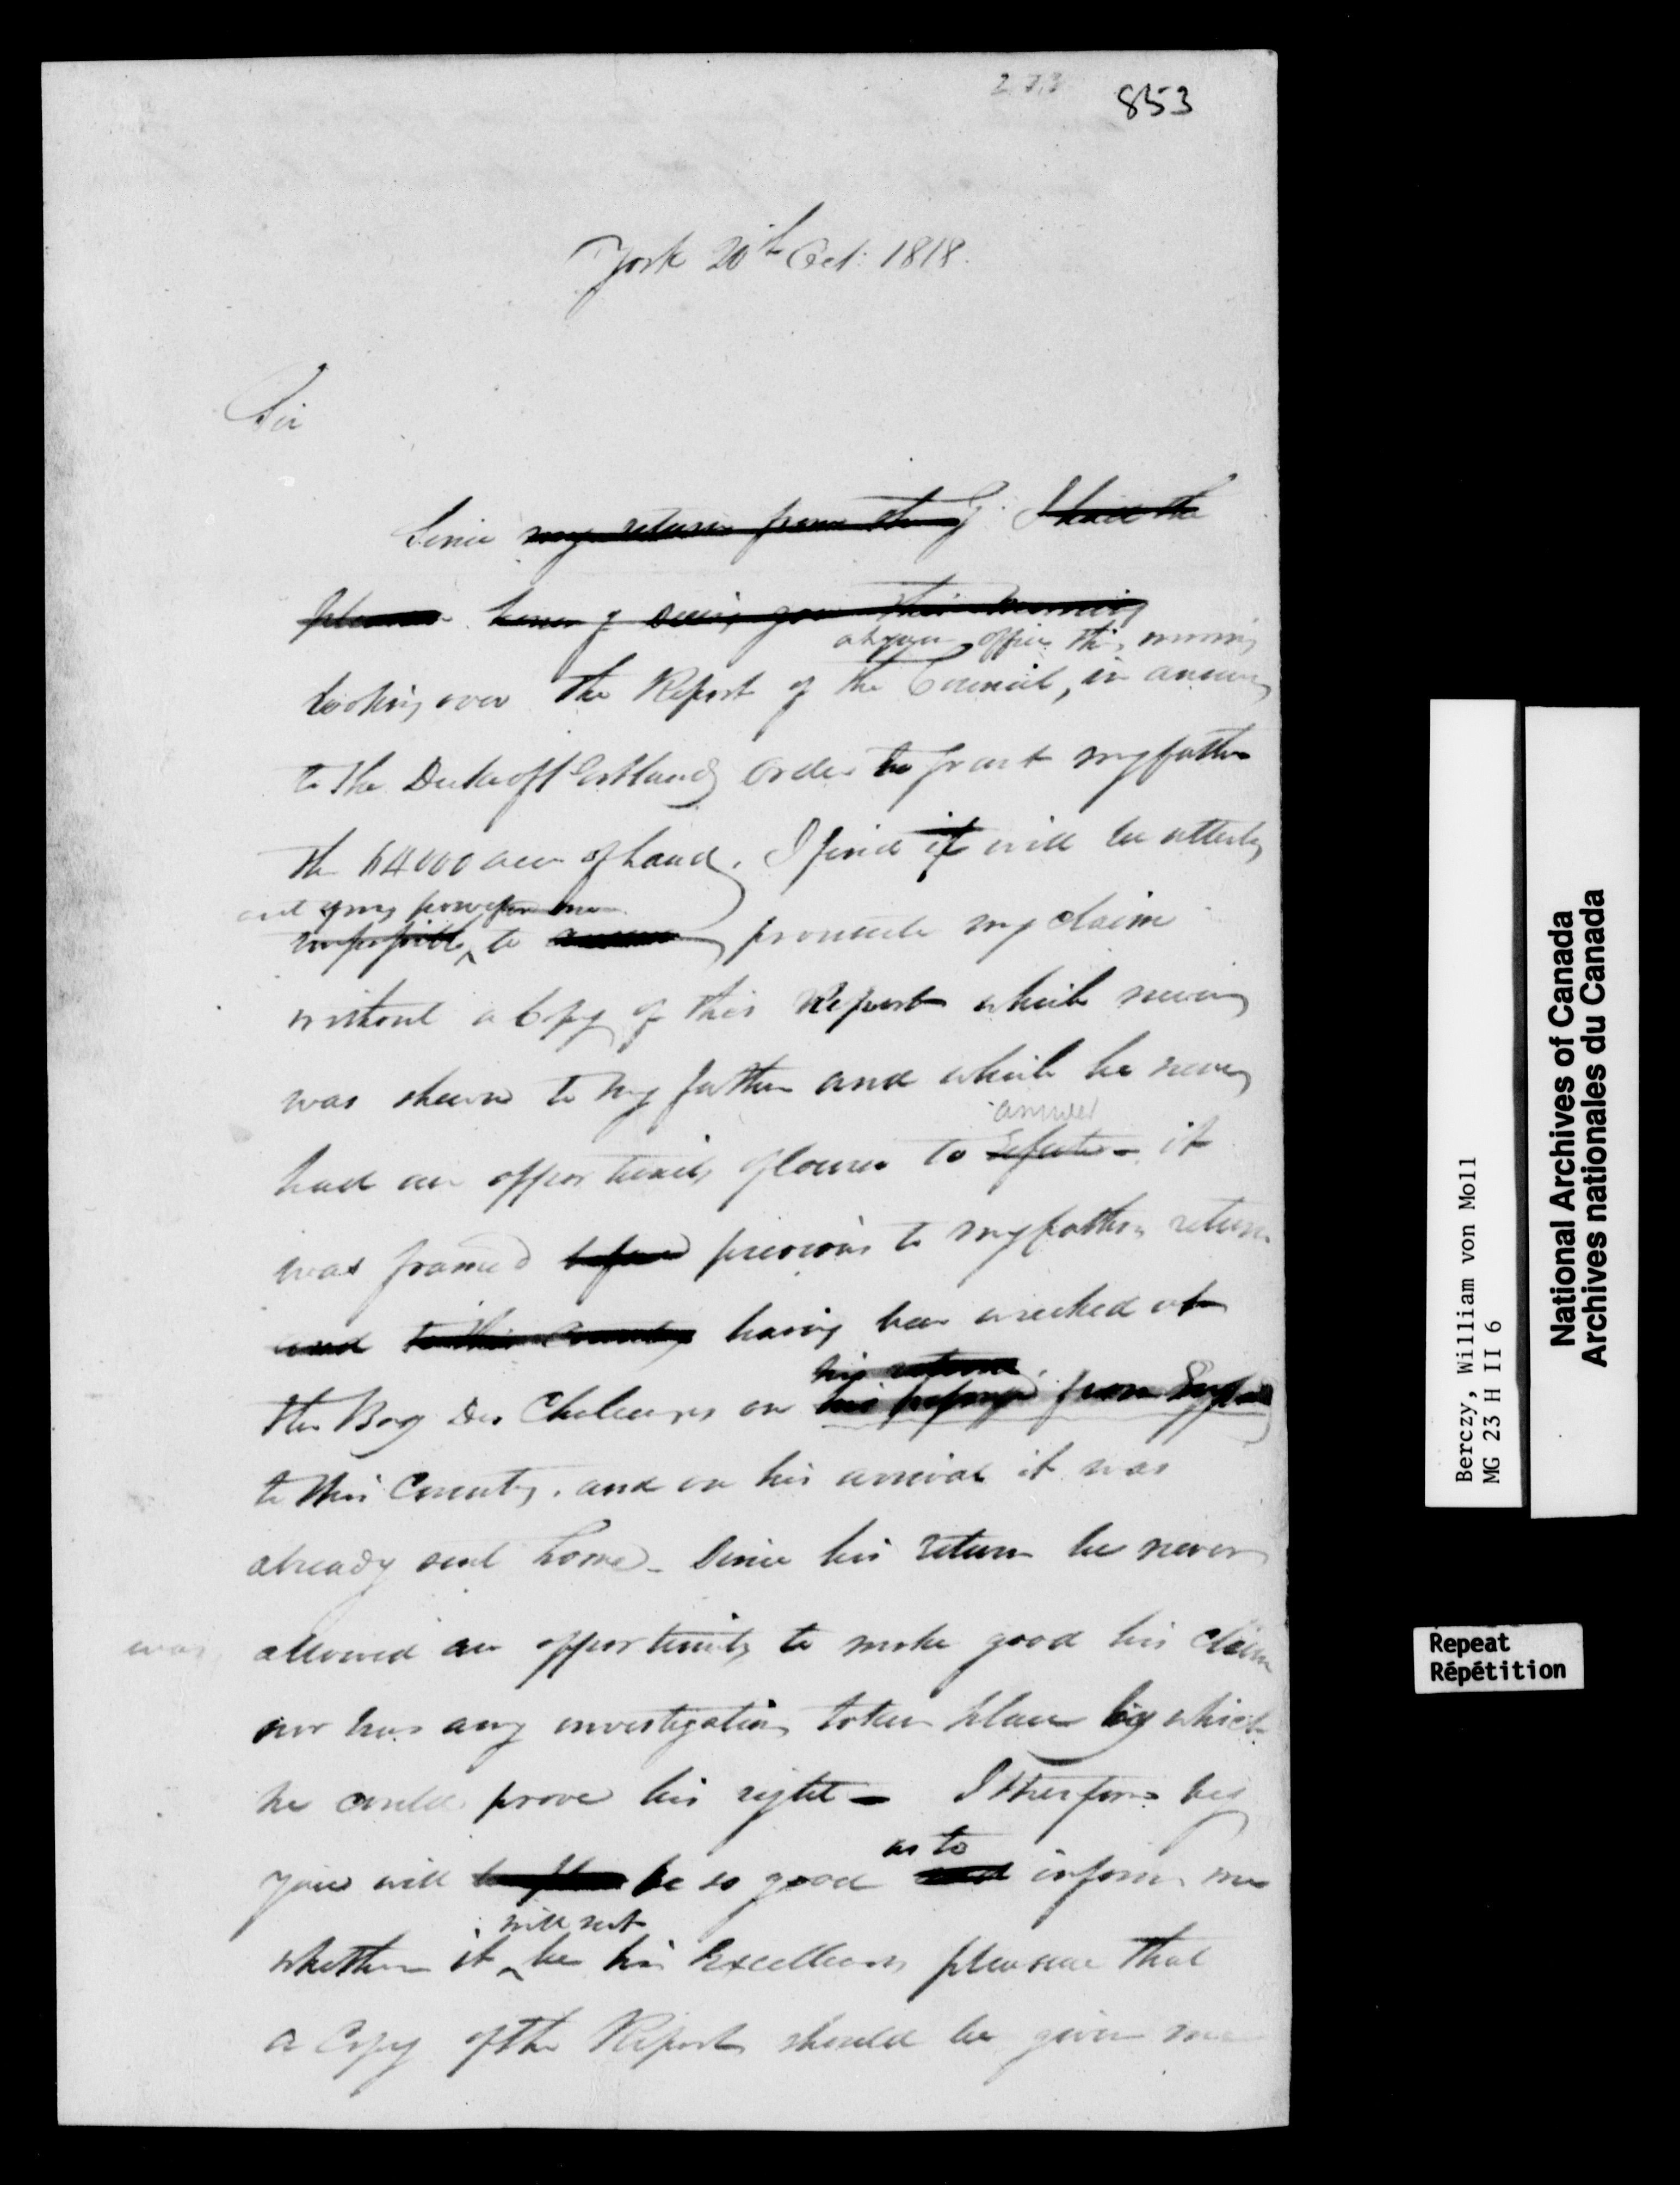 853
York 20th Oct: 1818.
Sir
Since my return from the I had the
pleasure honor of seeing you this morning
at your office this morning
looking over the Report of the Council, in answer
to the Duke of Portland's Order to grant my father
the 64000 acres of Land, I find it will be utterly
out of my power for me
impossible to prosecute my claim
without a Copy of this Report which never
was shewn to my father and which he never
answer
had an opportunity of course to refute it
was framed before previous to my fathers return
and to this Country having been wrecked at
his return
the Bay Des Chaleurs on his passage from England
to this Country. and on his arrival it was
already sent home - Since his return he never
was allowed an opportunity to make good his claim
nor has any investigation taken place by which
he could prove his right - I therefore beg
as to
you will be so good and inform me
will not
whether it be his Excellency's pleasure that
a Copy of the Report should be given me
Berczy, William von Moll
MG 23 H II 6
National Archives of Canada
Archives nationales du Canada
Repeat
Répétition